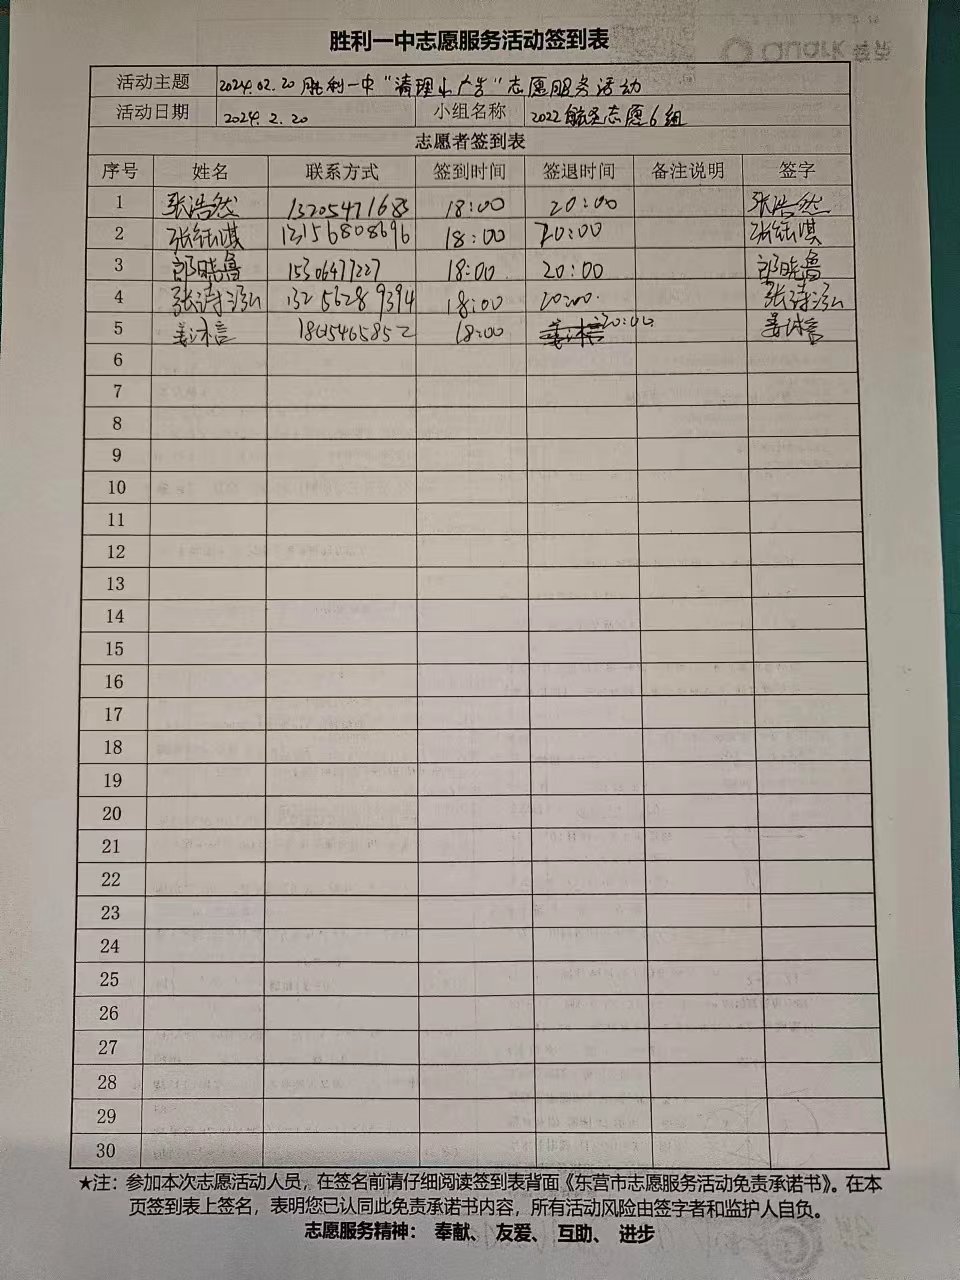 胜利一中志愿服务活动签到表
活动主题 2024.02.20 胜利一中“清理小广告”志愿服务活动
活动日期 2024.2.20 小组名称 2022航空志愿6组
志愿者签到表
序号 姓名 联系方式 签到时间 签退时间 备注说明 签字
1 张浩然 13205471685 18:00 20:00 张浩然
2 张钰淇 13156808696 18:00 20:00 张钰淇
3 郎晓鲁 15306477227 18:00 20:00 郎晓鲁
4 张诗泓 13256289394 18:00 20:00. 张诗泓
5 18:00 20:00.
6
7
8
9
10
11
12
13
14
15
16
17
18
19
20
21
22
23
24
25
26
27
28
29
30
★注：参加本次志愿活动人员，在签名前请仔细阅读签到表背面《东营市志愿服务活动免责承诺书》。在本
页签到表上签名，表明您已认同此免责承诺书内容，所有活动风险由签字者和监护人自负。
志愿服务精神： 奉献、 友爱、 互助、 进步